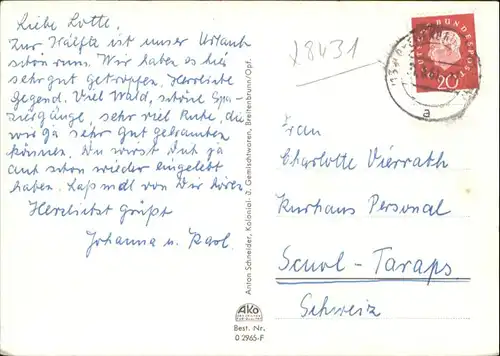 Liebe Lotte,
Zur Hälfte ist unser Urlaub
schon rum. Wir haben es hier
sehr gut getroffen, Herrliche
Gegend. Viel Wald, schöne Spa-
ziergänge, sehr viel Ruhe, die
wir ja sehr gut gebrauchen
können. Du wirst Dich ja
auch schon wieder eingelebt
haben. Laß mal von Dir hören.
Herzlichst grüßt
Johanna u. Karl.
Anton Schneider, Kolonial- u. Gemischtwaren, Breitenbrunn/Opf.
AKO
Best. Nr.
0 2965-F
x8431
DEUTSCHE BUNDESPOST
20
a
Frau
Charlotte Vierrath
Kurhaus Personal
Scuol-Taraps
Schweiz